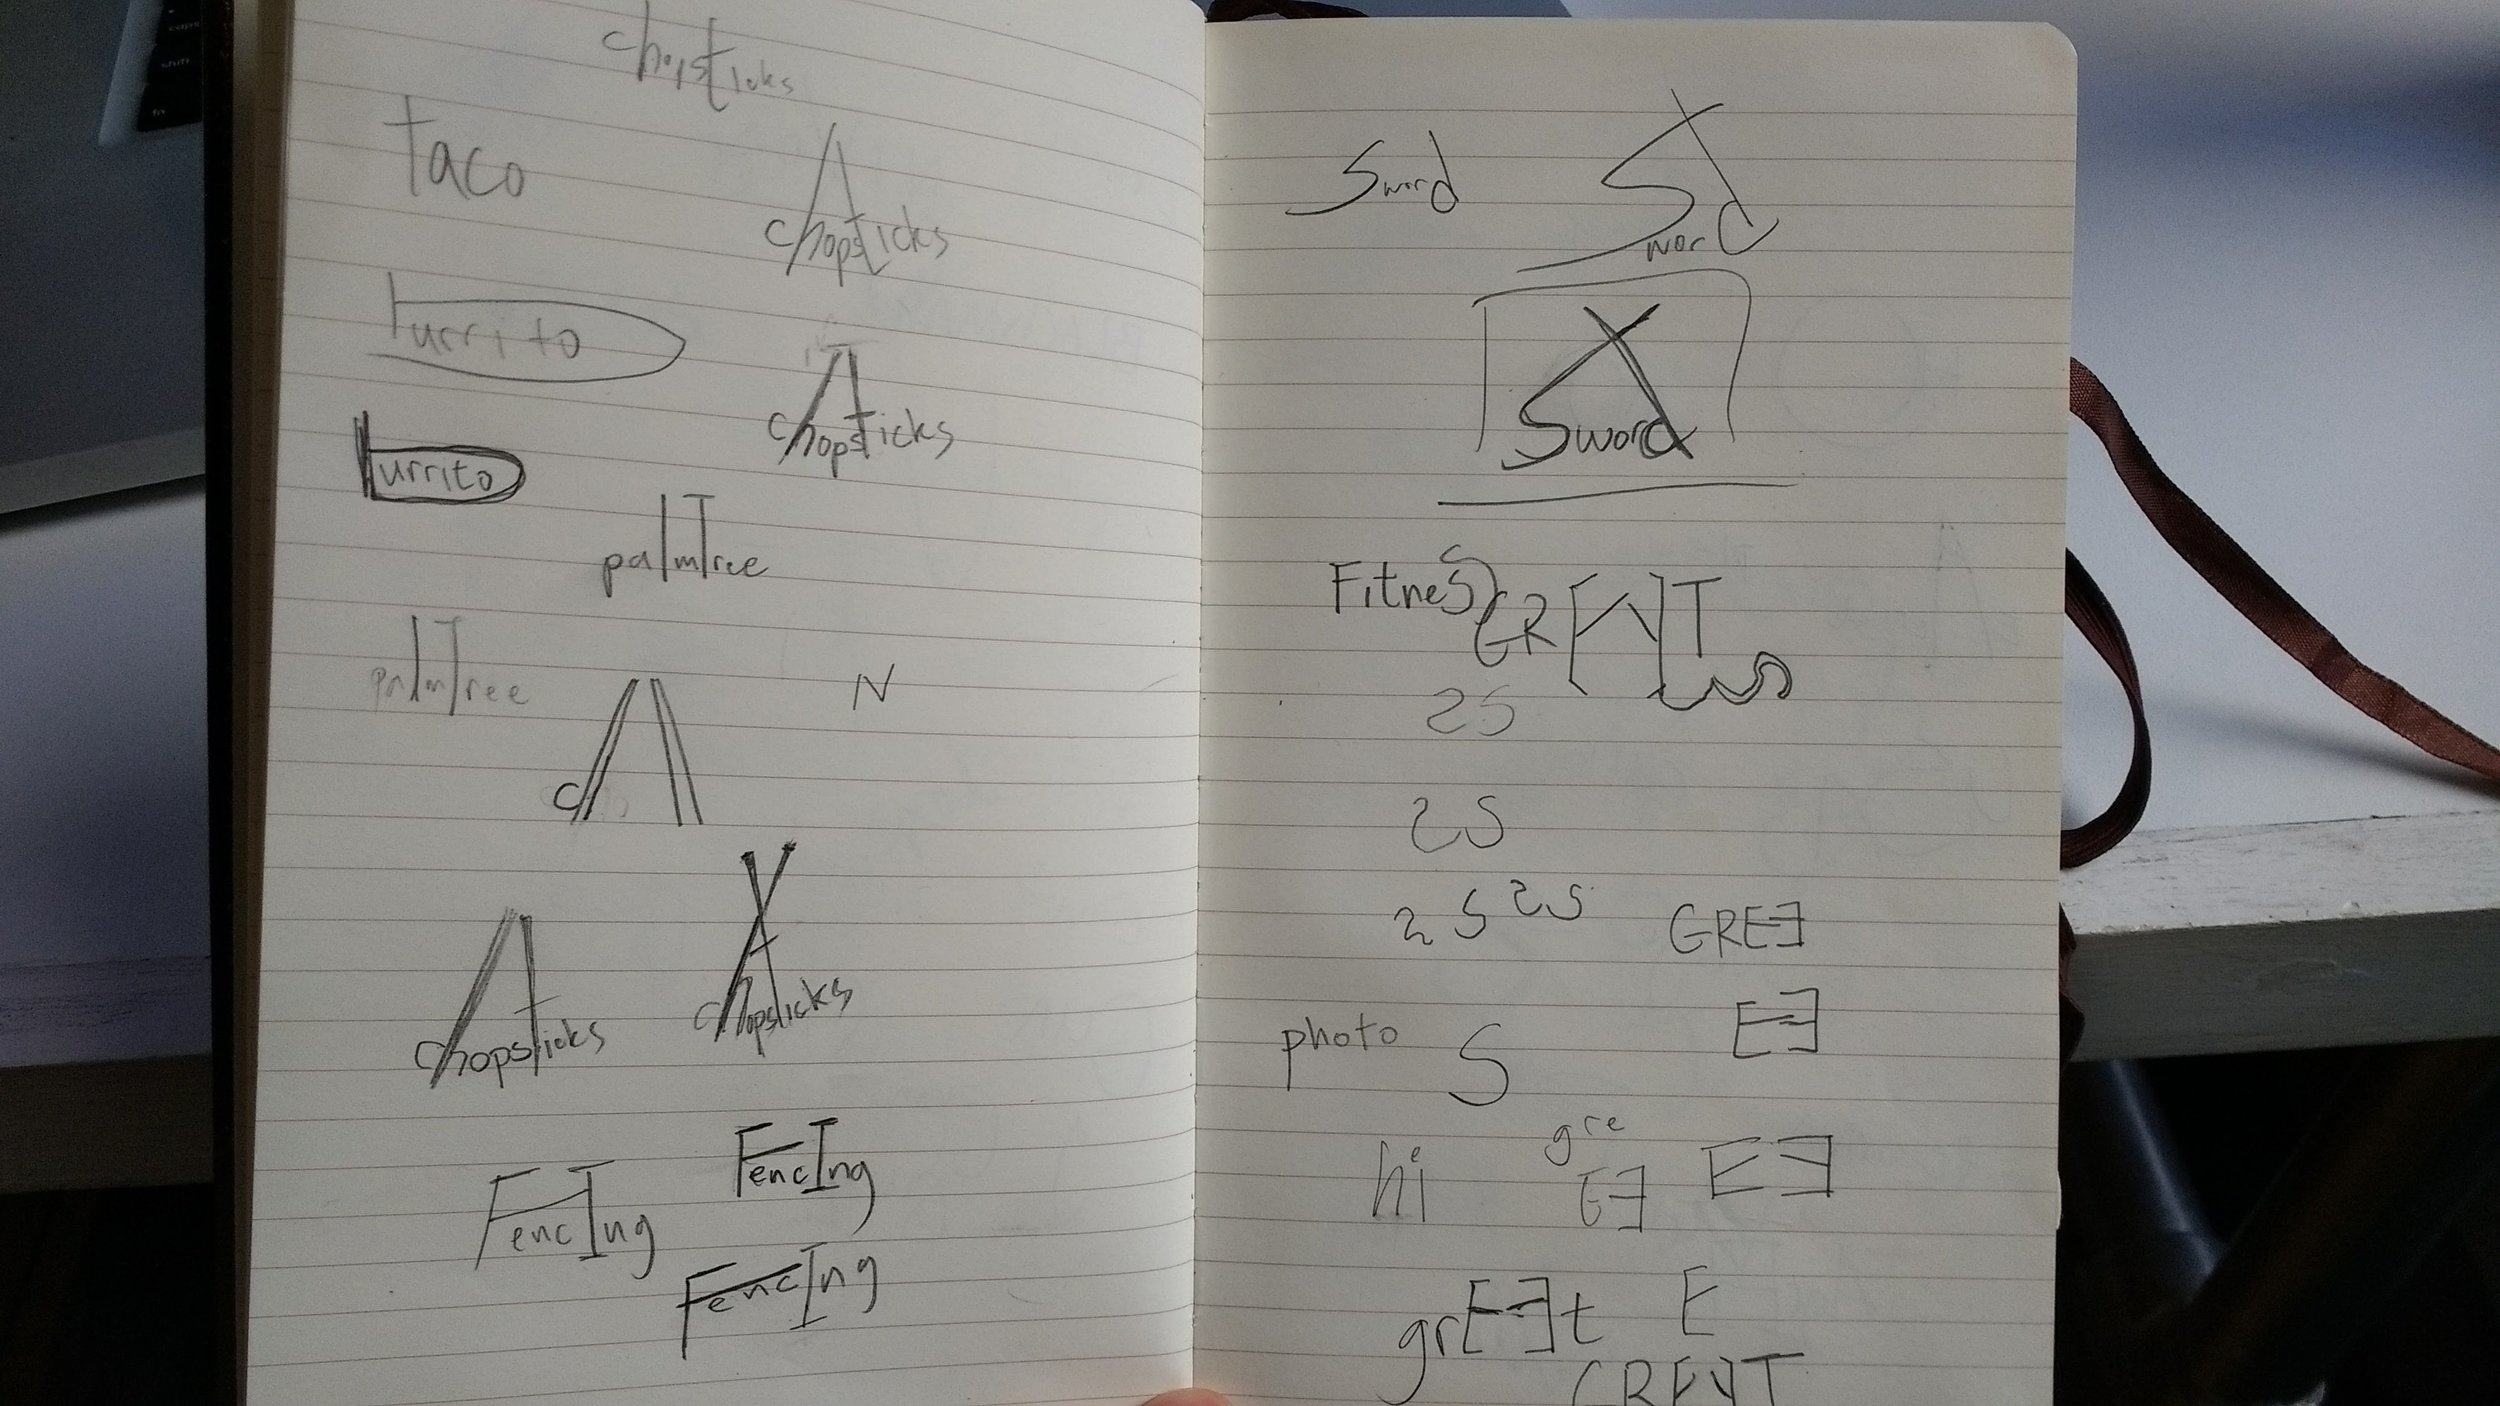 chopsticks
taco
chopsticks
urrito
chopsticks
urrito
palmTree
palmTree
N
c
chopsticks
chopsticks
FencIng
FencIng
FencIng
Sword
Sword
Sword
Fitness
GREET
2S
2S
2S 2S
GREE
EE
photo
S
gre
hi
EE
EE
grEEt
E
GREET
caps
shift
fn